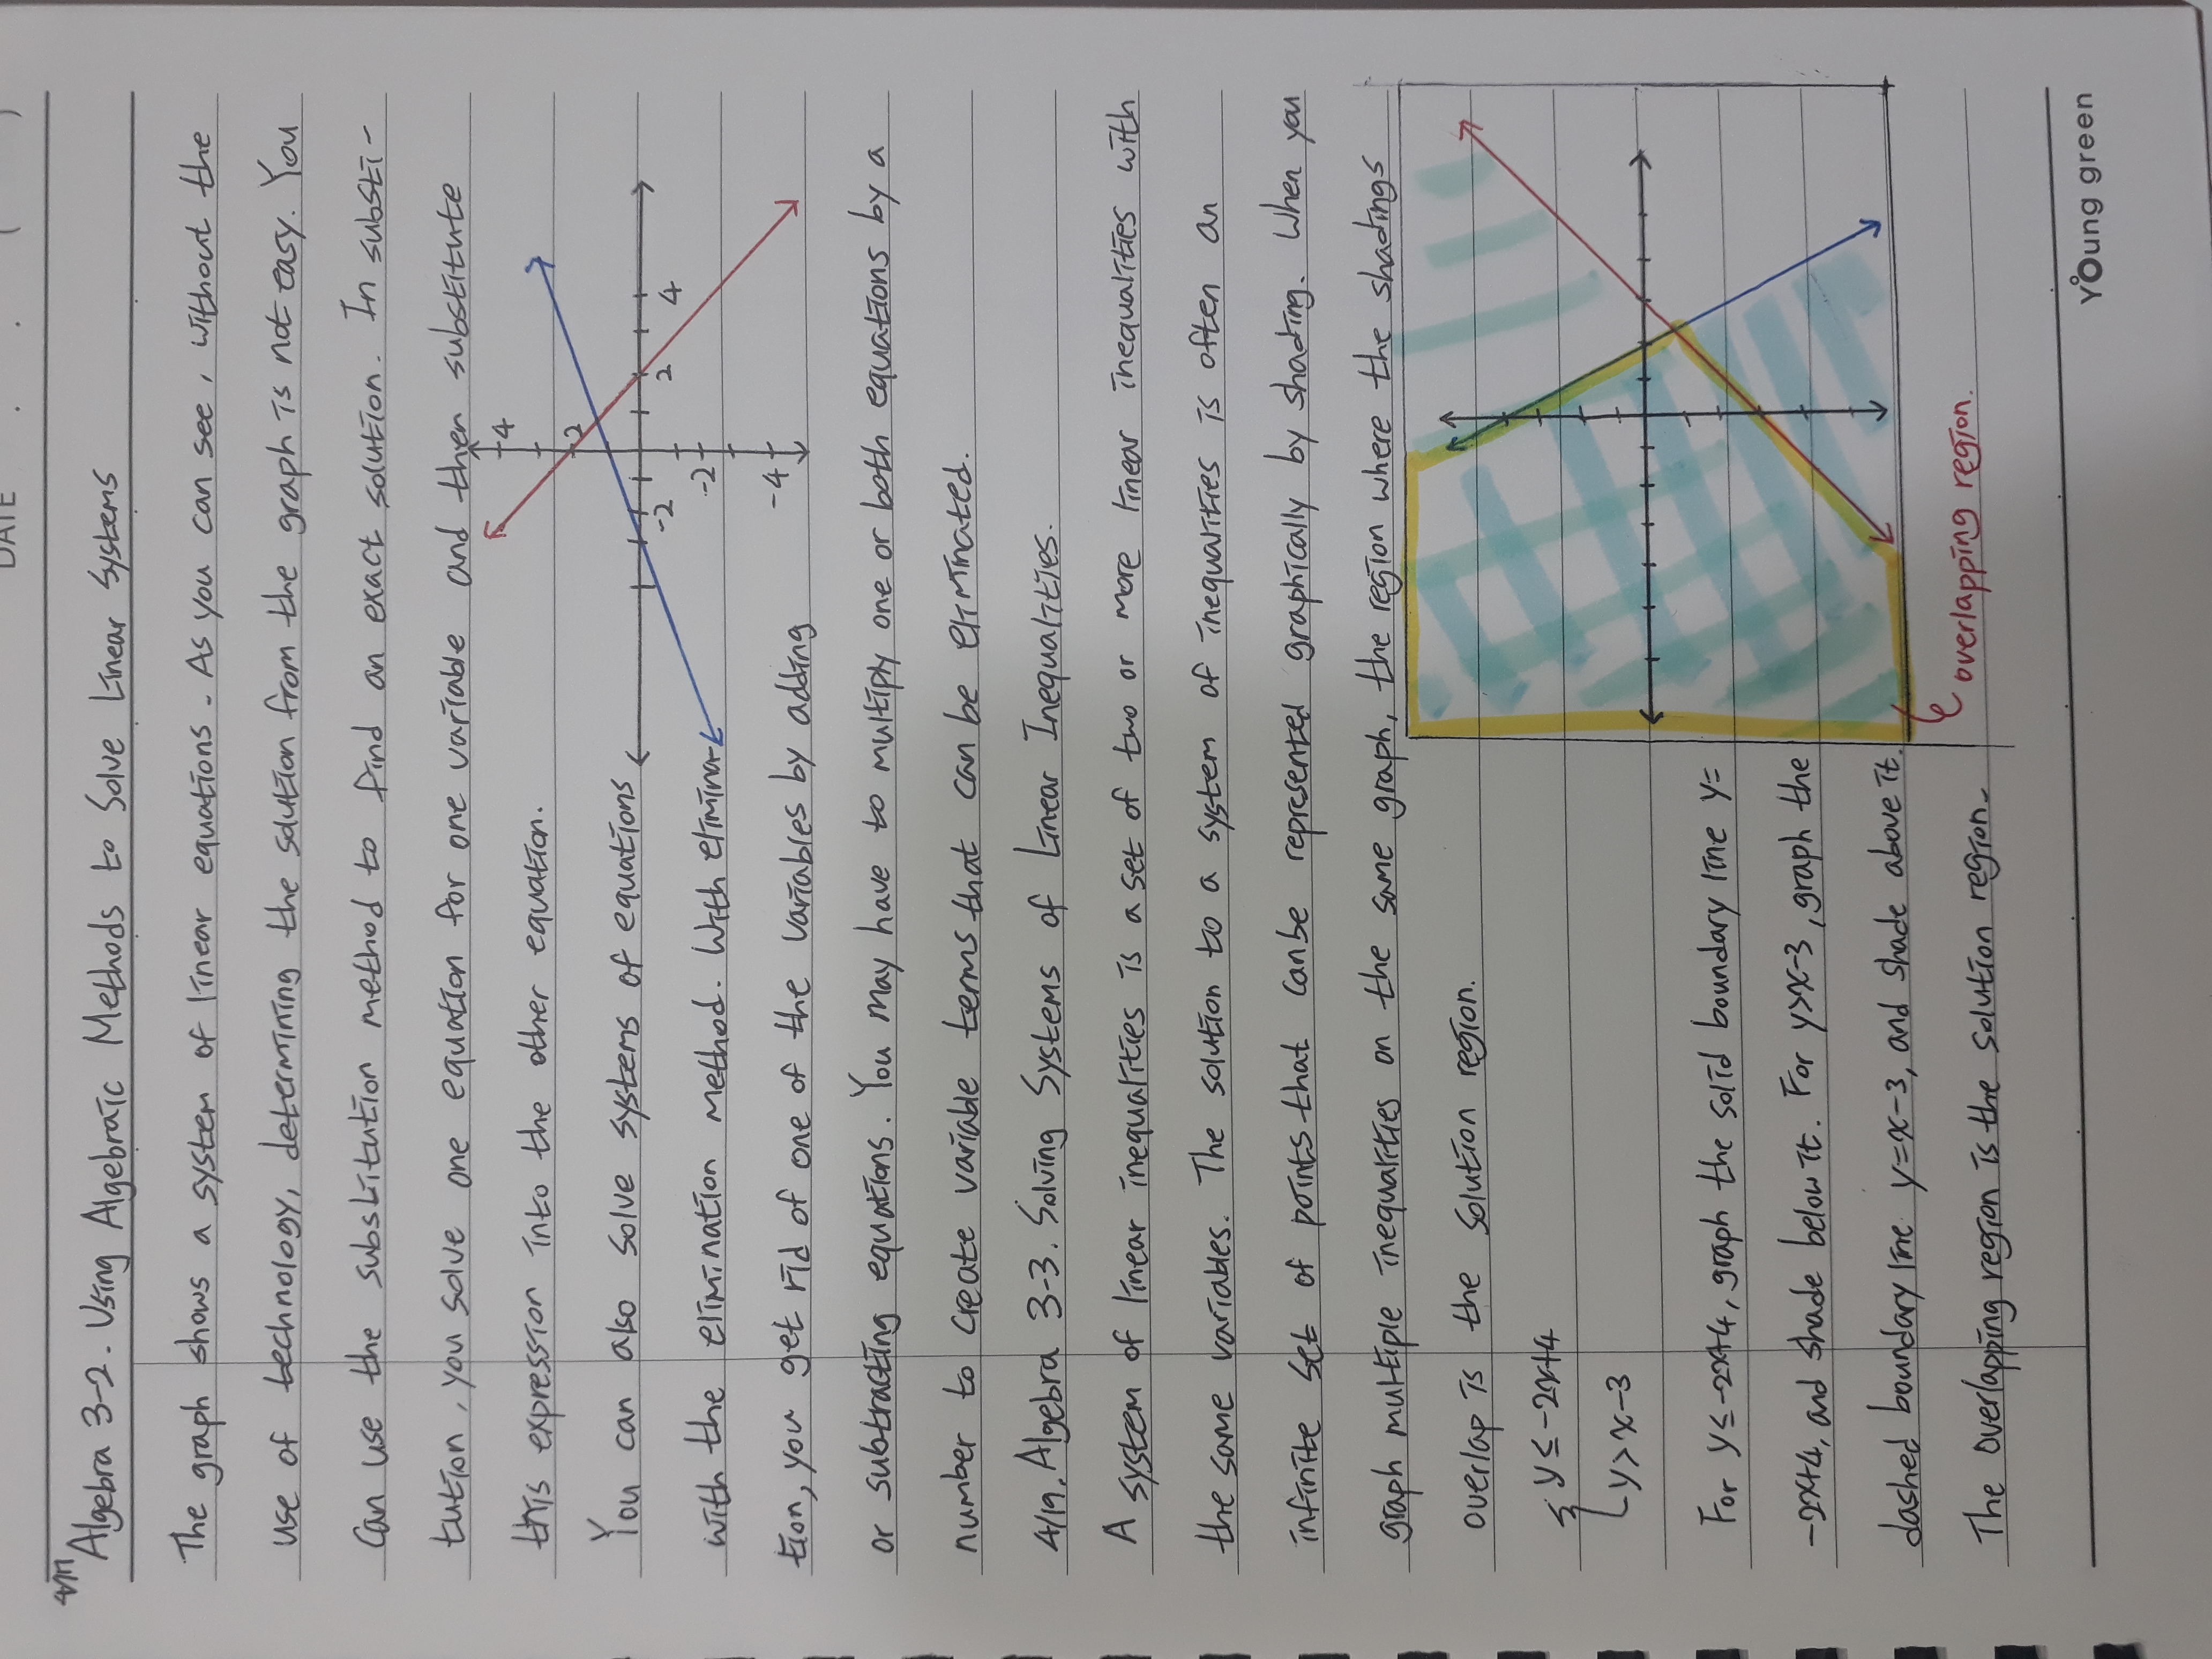 DATE . . ( )
Algebra 3-2. Using Algebraic Methods to Solve Linear Systems
The graph shows a system of linear equations. As you can see, without the
use of technology, determining the solution from the graph is not easy. You
can use the substitution method to find an exact solution. In substi-
tution, you solve one equation for one variable and then substitute
this expression into the other equation.
You can also solve systems of equations
with the elimination method. With elimina-
tion, you get rid of one of the variables by adding
4
2
-2
2
4
-2
-4
or subtracting equations. You may have to multiply one or both equations by a
number to create variable terms that can be eliminated.
4/19. Algebra 3-3. Solving Systems of Linear Inequalities.
A system of linear inequalities is a set of two or more linear inequalities with
the same variables. The solution to a system of inequalities is often an
infinite set of points that can be represented graphically by shading. When you
graph multiple inequalities on the same graph, the region where the shadings
overlap is the solution region.
{ y ≤ -2x+4
y > x-3
For y ≤ -2x+4, graph the solid boundary line y=
-2x+4, and shade below it. For y>x-3, graph the
dashed boundary line y=x-3, and shade above it.
The overlapping region is the solution region.
overlapping region.
Young green